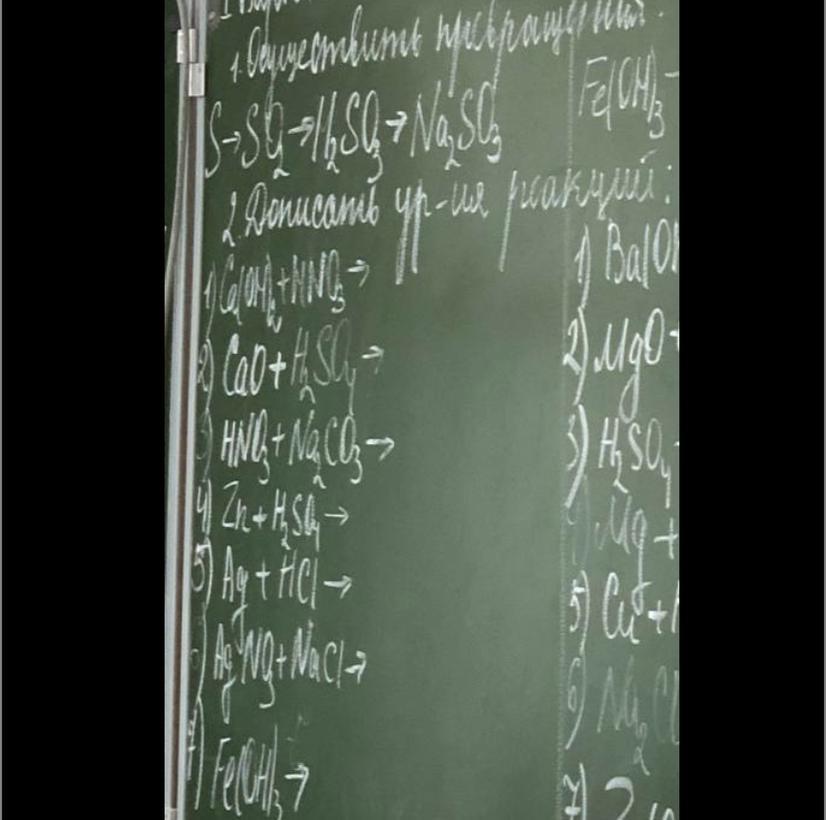 1. Осуществить превращения.
S→SO₂→H₂SO₃→Na₂SO₃
2. Дописать ур-ия реакций:
1) Ca(OH)₂+HNO₃→
2) CaO+H₂SO₄→
3) HNO₃+Na₂CO₃→
4) Zn+H₂SO₄→
5) Ag+HCl→
6) AgNO₃+NaCl→
7) Fe(OH)₃→
Fe(OH)₃
1) Ba(OH
2) MgO+
3) H₂SO₄
4) Mg+
5) Cu+
6) Na₂C
7) Z